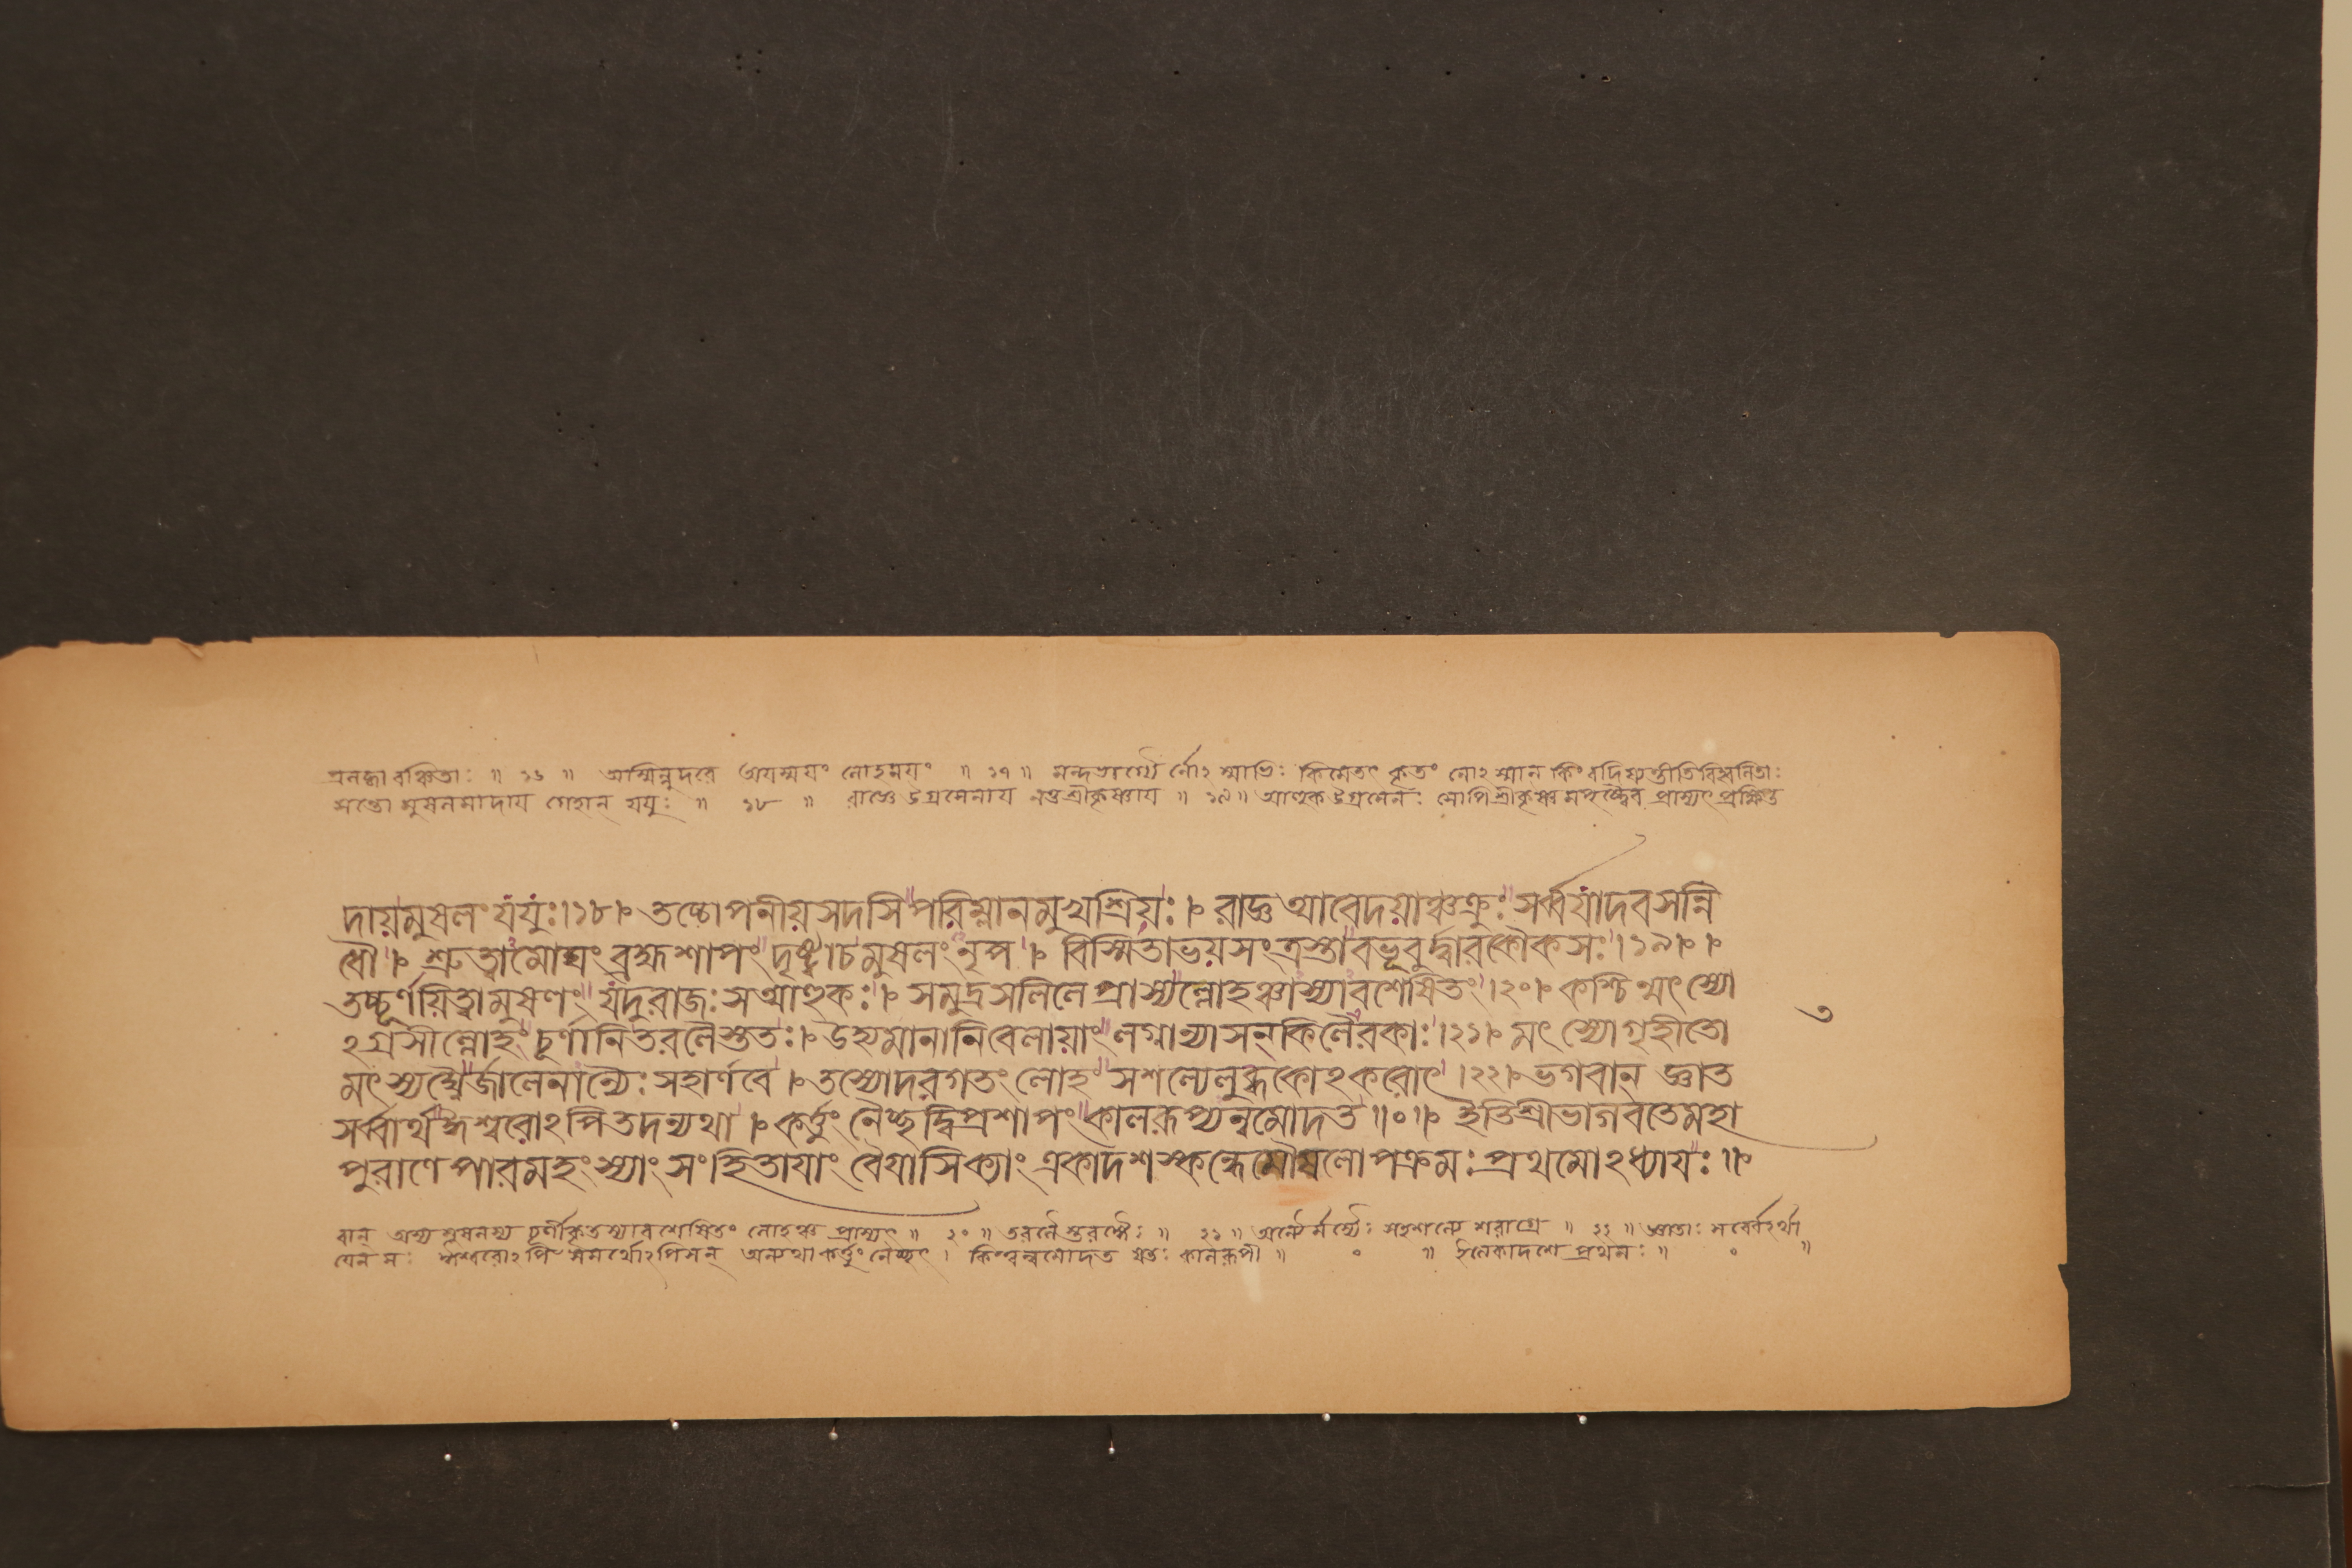 প্রলব্ধা বঞ্চিতাঃ ॥ ১৬ ॥ অস্মিন্নুদরে অয়স্ময়ং লোহময়ং ॥ ১৭ ॥ মন্দভাগ্যৈর্নোঽস্মাভিঃ কিমেতৎ কৃতং নোঽস্মান্ কিং বদিষ্যন্তীতিবিহ্বলিতাঃ
সন্তো মুষলমাদায় গেহান্ যযুঃ ॥ ১৮ ॥ রাজ্ঞে উগ্রসেনায় নতু শ্রীকৃষ্ণায় ॥ ১৯ ॥ আহুক উগ্রসেনঃ সোপি শ্রীকৃষ্ণমপৃষ্ট্বৈব প্রাস্যৎ প্রক্ষিপ্ত
দায়মুষলং যযুঃ।১৮। তচ্চোপনীয়সদসিপরিম্লানমুখশ্রিয়ঃ। রাজ্ঞ আবেদয়াঞ্চক্রুঃ সর্ব্বযাদবসন্নি
ধৌ। শ্রুত্বামোঘং ব্রহ্মশাপং দৃষ্ট্বাচমুষলংনৃপ। বিস্মিতাভয়সংত্রস্তাবভূবুর্দ্বারকৌকসঃ।১৯।।
তচ্চূর্ণয়িত্বামুষলং যদুরাজঃসআহুকঃ। সমুদ্রসলিলে প্রাস্যল্লোহঞ্চাস্যাবশেষিতং।২০। কশ্চিন্মৎস্যো
ঽগ্রসীল্লোহং চূর্ণানিতরলৈস্ততঃ। উহ্যমানানিবেলায়াং লগ্নান্যাসন্ কিলৈরকাঃ।২১। মৎস্যোগৃহীতো
৩
মৎস্যঘ্নৈর্জালেনান্যৈঃসহার্ণবে। তস্যোদরগতংলোহং সশল্যেলুব্ধকোঽকরোৎ।২২। ভগবান্ জ্ঞাত
সর্ব্বার্থঈশ্বরোঽপিতদন্যথা। কর্ত্তুং নৈচ্ছদ্বিপ্রশাপং কালরূপ্যন্বমোদত॥০॥ ইতিশ্রীভাগবতেমহা
পুরাণেপারমহংস্যাং সংহিতায়াং বৈয়াসিক্যাং একাদশস্কন্ধেমৌষলোপক্রমঃ প্রথমোঽধ্যায়ঃ॥
বান্ অস্য মুষলস্য চূর্ণীকৃতস্যাবশেষিতং লোহঞ্চ প্রাস্যৎ ॥ ২০ ॥ তরলৈস্তরঙ্গৈঃ ॥ ২১ ॥ অন্যৈর্মৎস্যৈঃ সহশল্যে শরাগ্রে ॥ ২২ ॥ জ্ঞাতাঃ সর্ব্বেঽর্থা
যেন সঃ ঈশ্বরোঽপি সমর্থোঽপিসন্ অন্যথাকর্ত্তুং নৈচ্ছৎ। কিন্ত্বন্বমোদত যতঃ কালরূপী ॥ ০ ॥ ইত্যেকাদশে প্রথমঃ ॥ ০ ॥